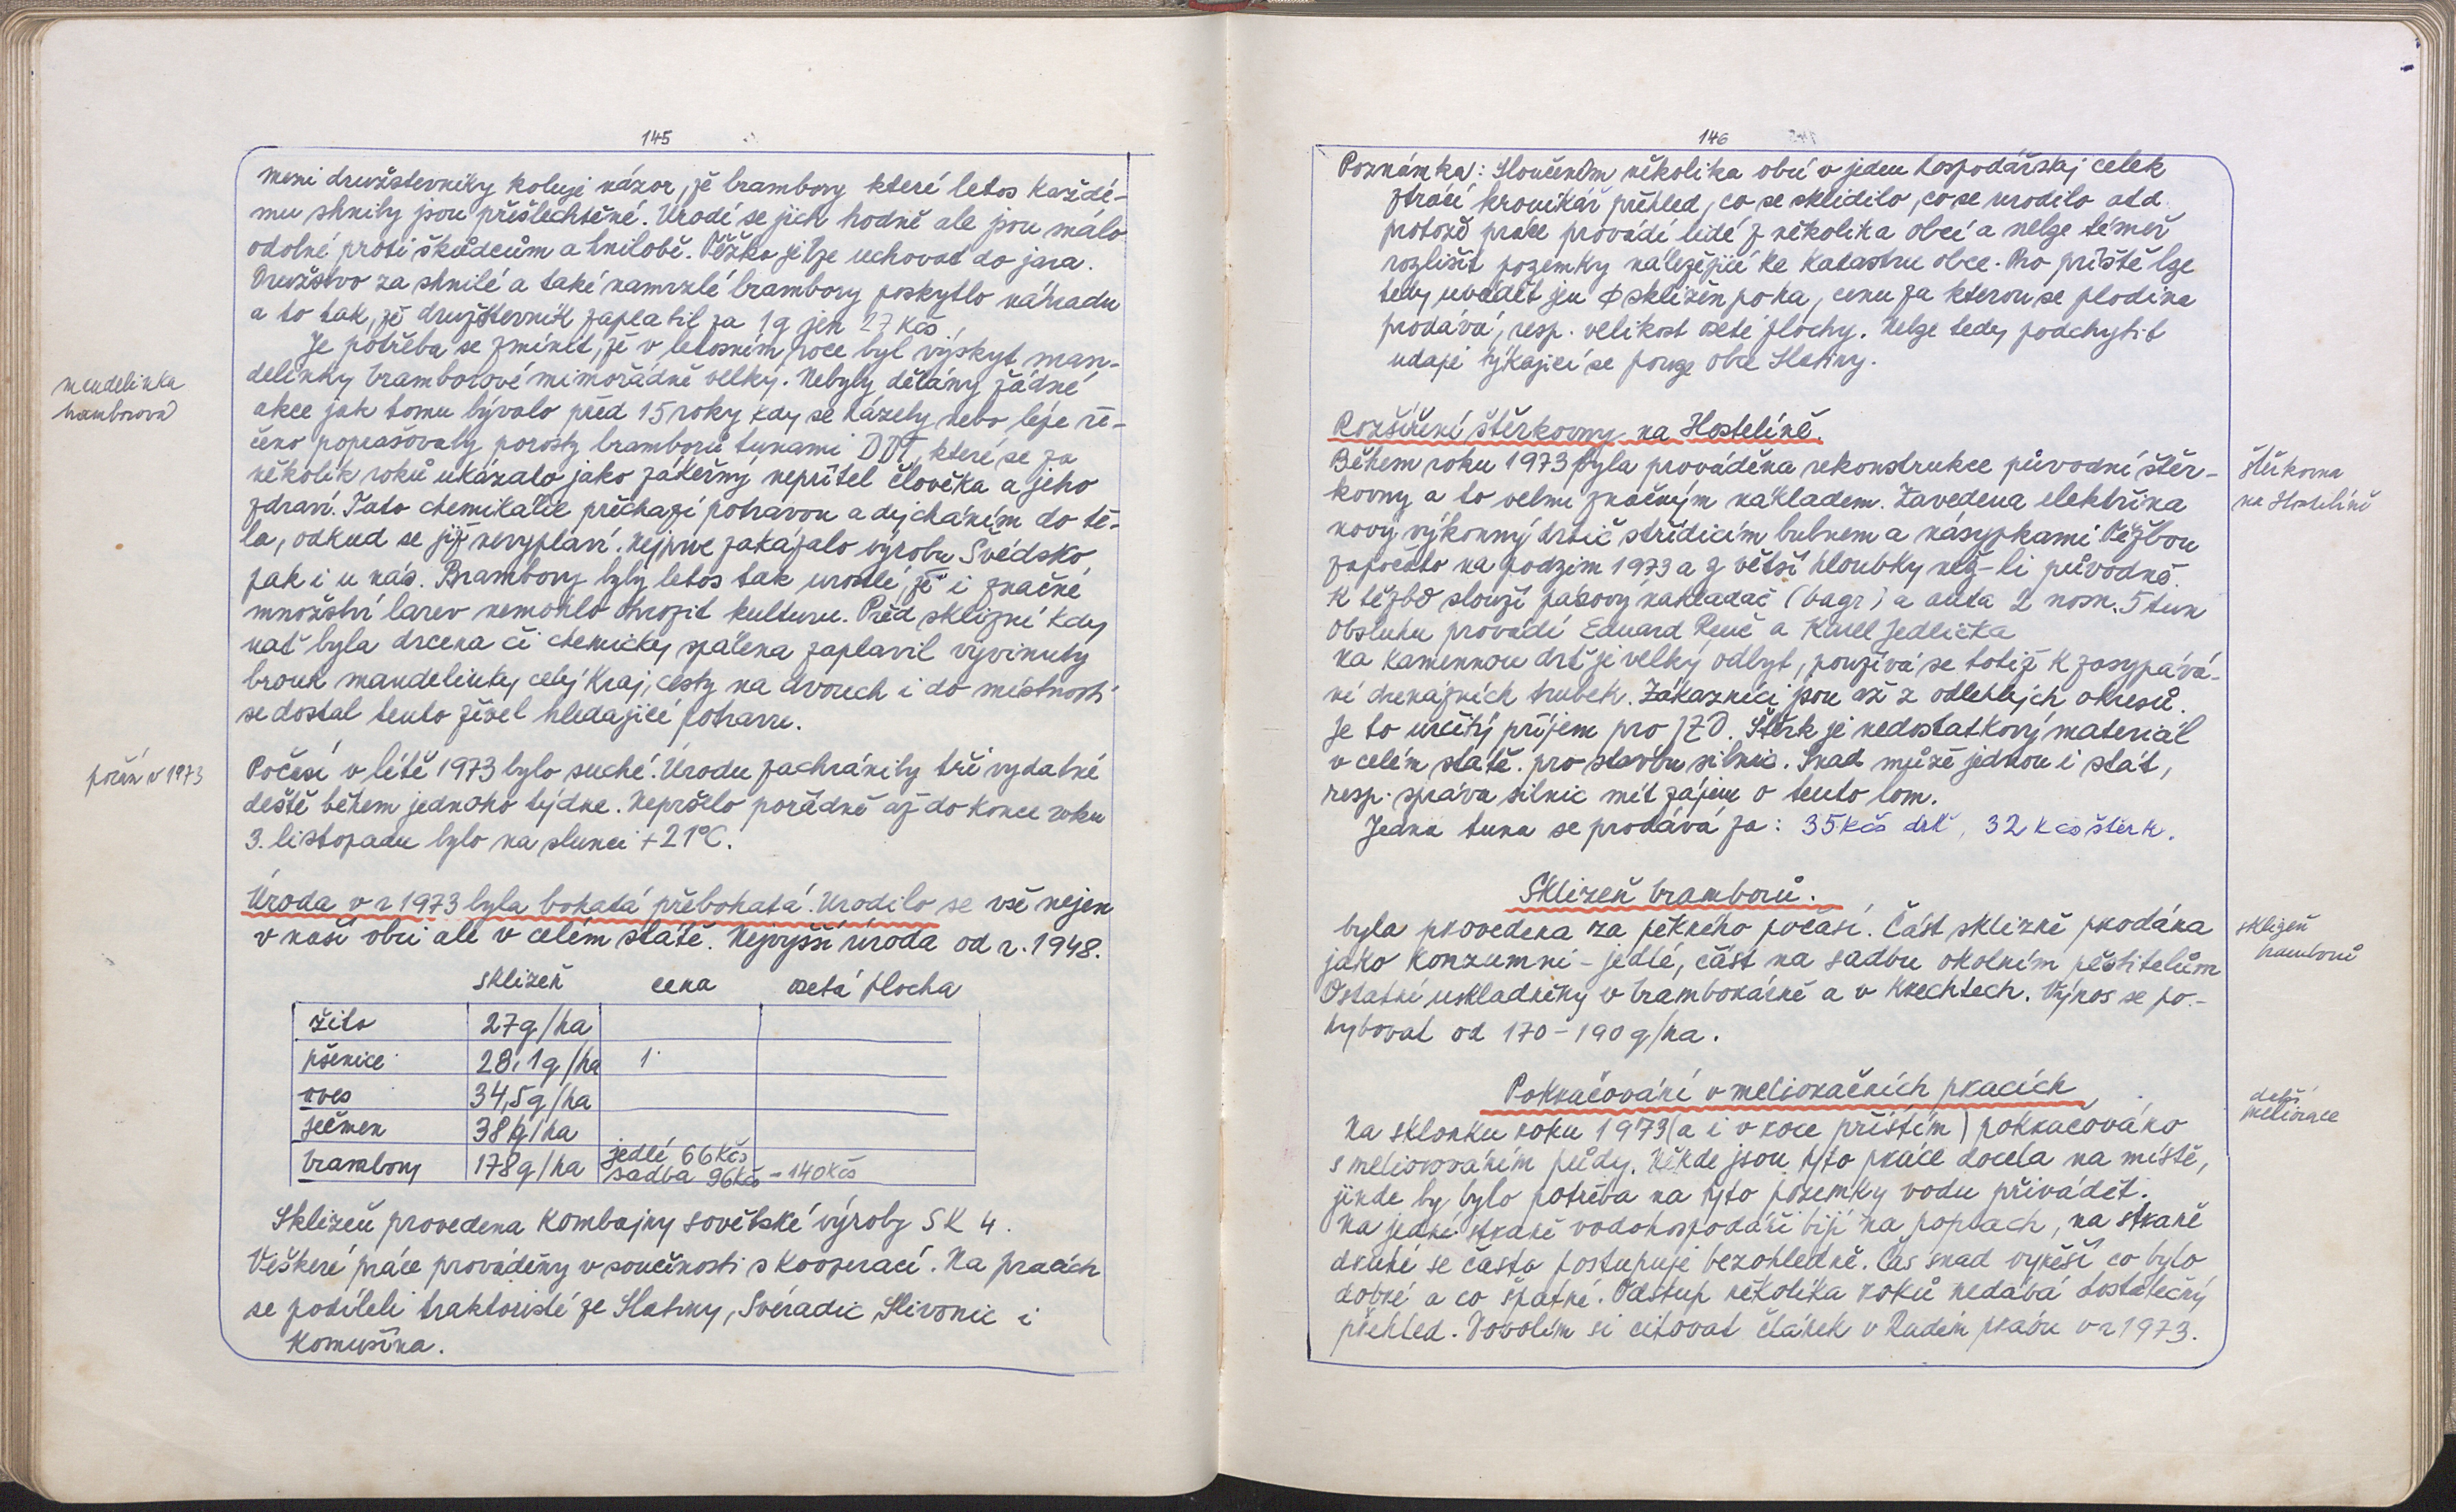 145
meni družstevníky koluje názor, že brambory které letos každé-
mu shnily jsou přešlechtěné. Urodí se jich hodně ale jsou málo
odolné proti škůdcům a hnilobě. Těžko je lze uchovat do jara.
Družstvo za shnilé a také namrzlé brambory poskytlo náhradu
a to tak, že družstevník zaplatil za 1q jen 27 Kčs.
Je potřeba se zmínit, že v letošním roce byl výskyt man-
delinky bramborové mimořádně velký. Nebyly dělány žádné
mandelinka
bramborová
akce jak tomu bývalo před 15 roky kdy se házely nebo lépe ře-
čeno poprašovaly porosty bramborů tunami DDT, které se za
několik roků ukázalo jako zákeřný nepřítel člověka a jeho
zdraví. Tato chemikálie přechází potravou a dýcháním do tě-
la, odkud se již nevyplaví. Nejprve zakázalo výrobu Švédsko,
pak i u nás. Brambory byly letos tak urostlé, že i značné
množství larev nemohlo ohrozit kulturu. Před sklizní kdy
nať byla drcena či chemicky spálena zaplavil vyvinutý
brouk mandelinky celý kraj, cesty na dvorech i do místností
se dostal tento živel hledající potravu.
počasí v 1973
Počasí v létě 1973 bylo suché. Úrodu zachránily tři vydatné
deště během jednoho týdne. Nepršelo pořádně až do konce roku
3. listopadu bylo na slunci +21°C.
Úroda v r 1973 byla bohatá přebohatá. Urodilo se vše nejen
v naší obci ale v celém státě. Nejvyšší úroda od r. 1948.
sklizeň cena osetá plocha
žito 27q/ha
pšenice 28,1q/ha 1
oves 34,5q/ha
ječmen 38q/ha
brambory 178q/ha jedlé 66Kčs
sadba 96Kčs - 140Kčs
Sklizeň provedena kombajny sovětské výroby SK 4.
Veškeré práce prováděny v součinosti s kooperací. Na pracích
se podíleli traktoristé ze Slatiny, Svéradic, Slivonic i
Komušína.
146
Poznámka: Sloučením několika obcí v jeden hospodářský celek
ztrácí kronikář přehled, co se sklidilo, co se urodilo atd.
protože práce provádí lidé z několika obcí a nelze téměř
rozlišit pozemky náležející ke katastru obce. Pro příště lze
tedy uvádět jen Ø sklizěn po ha, cenu za kterou se plodina
prodává, resp. velikost oseté plochy. Nelze tedy podchytit
udaje týkající se pouze obce Slatiny.
Rozšíření štěrkovny na Hostelíně.
Během roku 1973 byla prováděna rekonstrukce původní štěr-
štěrkovna
kovny a to velmi značným nákladem. Zavedena elektřina
na Hostelíně
nový výkonný drtič s třídícím bubnem a násypkami. Těžbou
započato na podzim 1973 a z větší hloubky než-li původně.
K těžbě slouží pásový nakladač (bagr) a auta 2 nosn. 5 tun
Obsluhu provádí Eduard Reuč a Karel Jedlička
Na kamennou drť je velký odbyt, používá se totiž k zasypává-
ní drenážních trubek. Zákazníci jsou až z odlehlých okresů.
Je to určitý příjem pro JZD. Štěrk je nedostatkový materiál
v celém státě. pro stavbu silnic. Snad může jednou i stát,
resp. správa silnic mít zájem o tento lom.
Jedna tuna se prodává za: 35 Kčs drť, 32 Kčs štěrk.
Sklizeň bramborů.
byla provedena za pěkného počasí. Část sklizně prodána
sklizeň
bramborů
jako konzumní - jedlé, část na sadbu okolním pěstitelům
Ostatní uskladněny v bramborárně a v krechtech. Výnos se po-
hyboval od 170-190q/ha.
Pokračování v melioračních pracích
další
meliorace
Na sklonku roku 1973 (a i v roce příštím) pokračováno
s meliorováním půdy. Někde jsou tyto práce docela na místě,
jinde by bylo potřeba na tyto pozemky vodu přivádět.
Na jedné straně vodohospodáři bijí na poplach, na straně
druhé se často postupuje bezohledně. Čas snad vyřeší co bylo
dobré a co špatné. Odstup několika roků nedává dostatečný
přehled. Dovolím si citovat článek v Rudém právu v r 1973.